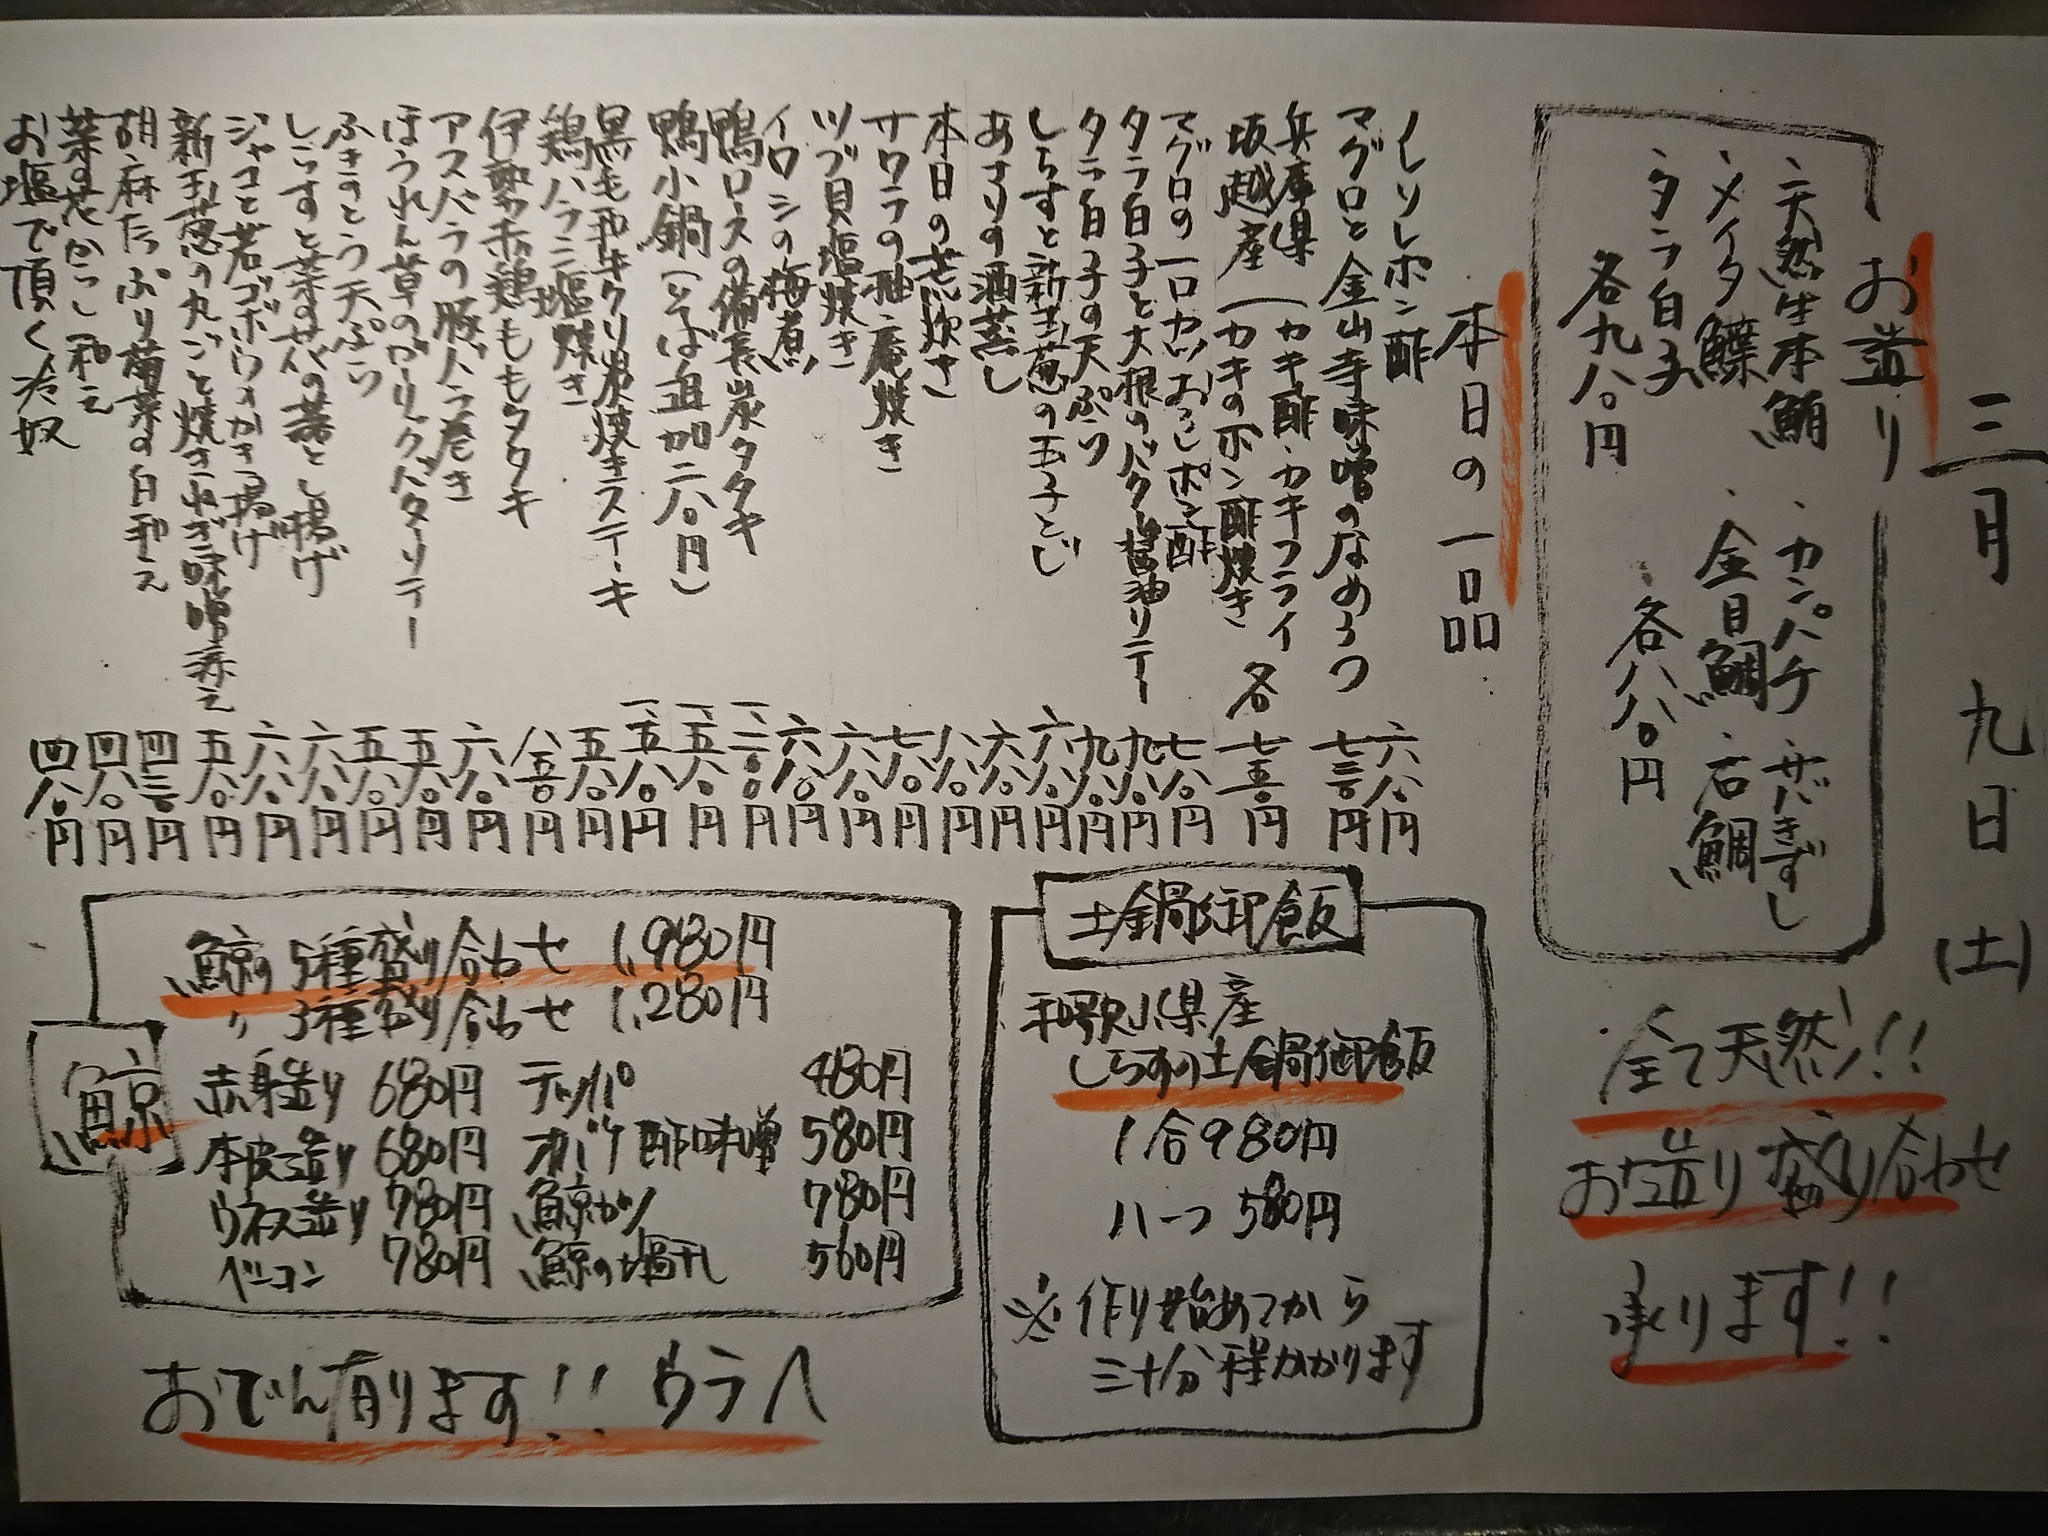 三月 九日 (土)
お造り
・天然生本鮪 ・カンパチ ・サバきずし
・メイタ鰈 ・金目鯛 ・石鯛
・タラ白子 ・各八八〇円
各九八〇円
全て天然!!
お造り盛り合わせ
承ります!!
本日の一品
イレソレポン酢 六八〇円
マグロと金山寺味噌のなめろう 七三〇円
兵庫県 (カキ酢・カキフライ
坂越産 (カキのポン酢焼き 各 七五〇円
マグロの一口カツおろしポン酢 七八〇円
タラ白子と大根のバター醤油ソテー 九八〇円
タラ白子の天ぷら 九八〇円
しらすと新玉葱の玉子とじ 六八〇円
あさりの酒蒸し 六八〇円
本日の荒炊き 八八〇円
サワラの柚庵焼き 七八〇円
ツブ貝塩焼き 六八〇円
イワシの梅煮 六八〇円
鴨ロースの備長炭タタキ 一二〇〇円
鴨小鍋(そば追加二八〇円) 一五八〇円
黒毛和牛クリ炭焼きステーキ 一五八〇円
鶏ハラミ塩焼き 五八〇円
伊勢赤鶏ももタタキ 八五〇円
アスパラの豚バラ巻き 六八〇円
ほうれん草のガーリックバターソテー 五八〇円
ふきのとう天ぷら 五八〇円
しらすと菜の花の落とし揚げ 六八〇円
ジャコと若ゴボウのかき揚げ 六八〇円
新玉葱の丸ごと焼きねぎ味噌添え 五八〇円
胡麻たっぷり菊菜の白和え 四三〇円
菜の花からし和え 四八〇円
お塩で頂く冷奴 四八〇円
土鍋御飯
和歌山県産
しらすの土鍋御飯
1合980円
ハーフ 580円
※作り始めてから
三十分程かかります
鯨
鯨の5種盛り合わせ 1,980円
〃 3種盛り合わせ 1,280円
赤身造り 680円 テッパ 480円
本皮造り 680円 オバケ酢味噌 580円
ウネス造り 780円 鯨カツ 780円
ベーコン 780円 鯨の塩干し 560円
おでん有ります!! ウラへ